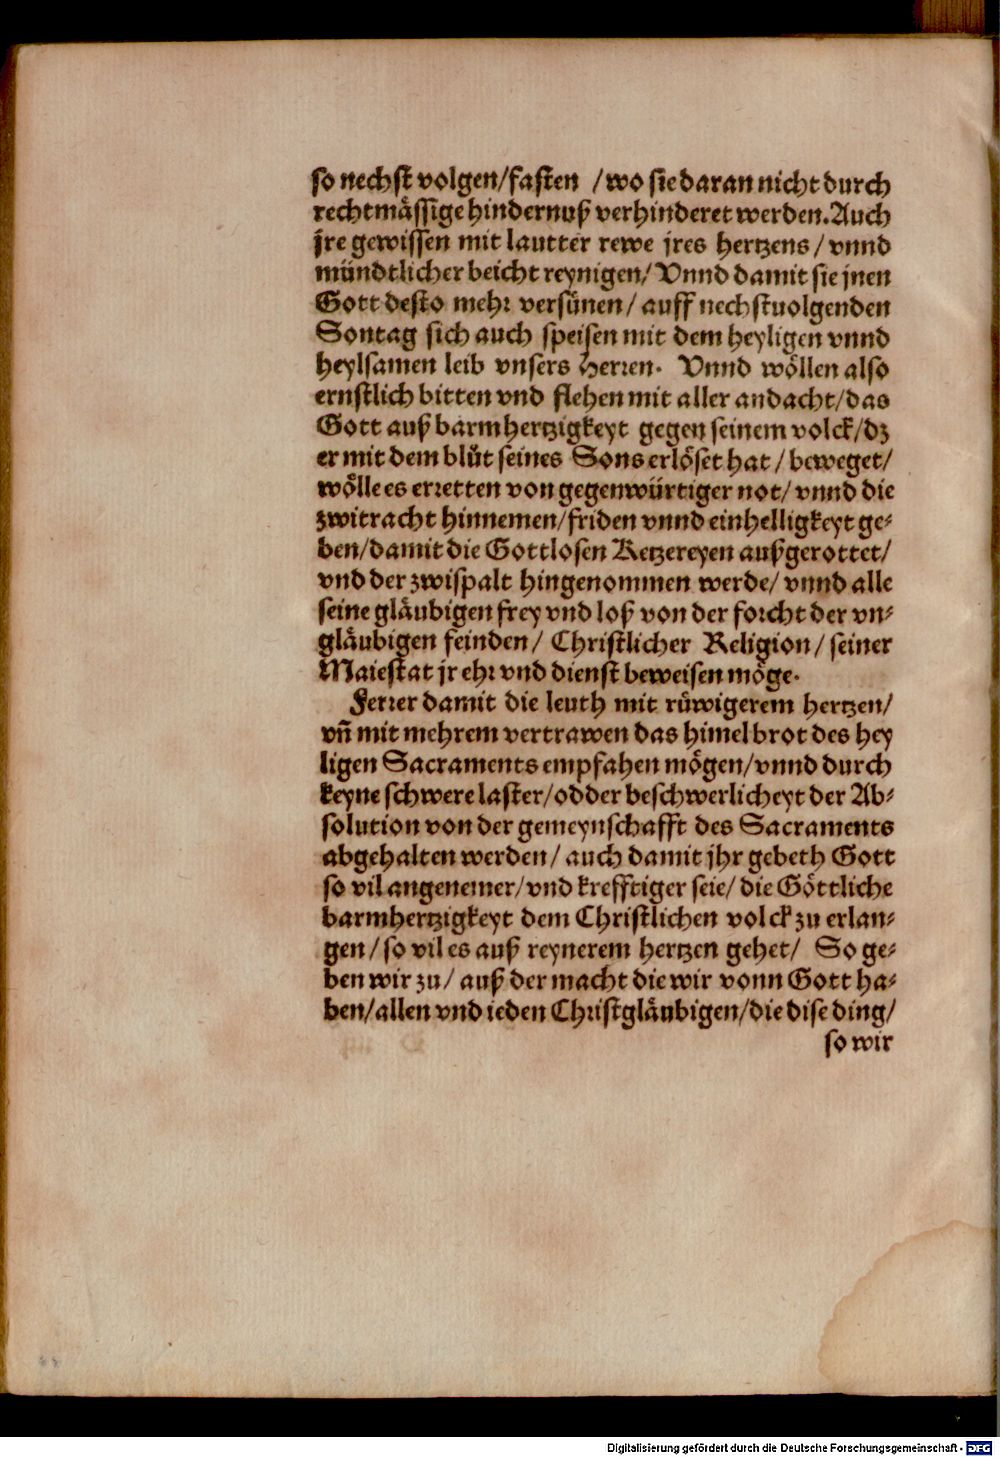 so nechst volgen/fasten /wo sie daran nicht durch
rechtmässige hindernuß verhinderet werden.Auch
jre gewissen mit lautter rewe jres hertzens/ vnnd
mündtlicher beicht reynigen/ Vnnd damit sie jnen
Gott desto mehr versünen/ auff nechstuolgenden
Sontag sich auch speisen mit dem heyligen vnnd
heylsamen leib vnsers Herren. Vnnd wöllen also
ernstlich bitten vnd flehen mit aller andacht/das
Gott auß barmhertzigkeyt gegen seinem volck/dz
er mit dem blůt seines Sons erlöset hat/ beweget/
wölle es erretten von gegenwürtiger not/ vnnd die
zwitracht hinnemen/friden vnnd einhelligkeyt ge-
ben/damit die Gottlosen Ketzereyen außgerottet/
vnd der zwispalt hingenommen werde/ vnnd alle
seine gläubigen frey vnd loß von der forcht der vn-
gläubigen feinden/ Christlicher Religion/ seiner
Maiestat jr ehr vnd dienst beweisen möge.
Ferrer damit die leuth mit rüwigerem hertzen/
vn̄ mit mehrem vertrawen das himelbrot des hey
ligen Sacraments empfahen mögen/vnnd durch
keyne schwere laster/odder beschwerlicheyt der Ab-
solution von der gemeynschafft des Sacraments
abgehalten werden/ auch damit jhr gebeth Gott
so vil angenemer/vnd krefftiger seie/ die Göttliche
barmhertzigkeyt dem Christlichen volck zu erlan-
gen/so vil es auß reynerem hertzen gehet/ So ge-
ben wir zu/ auß der macht die wir vonn Gott ha-
ben/allen vnd ieden Christgläubigen/die dise ding/
so wir
Digitalisierung gefördert durch die Deutsche Forschungsgemeinschaft - DFG